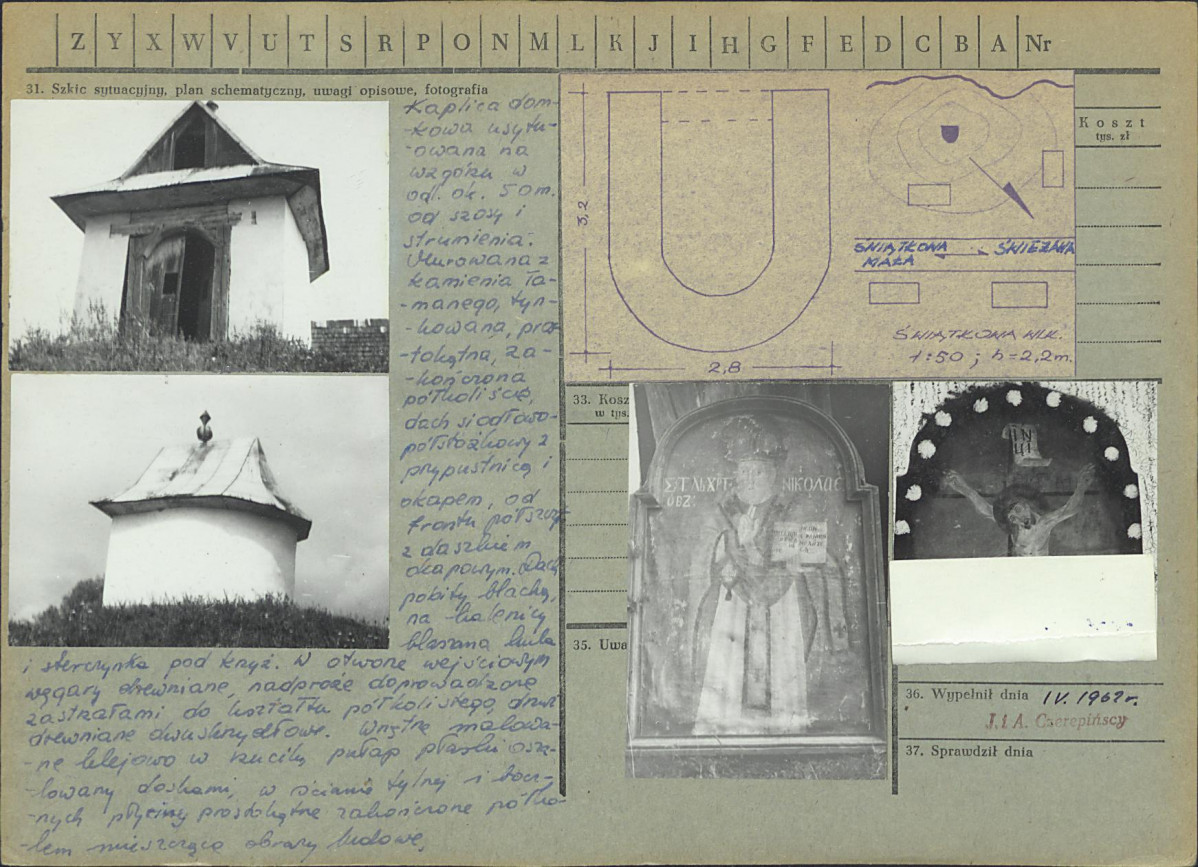 Z Y X W V U T S R P O N M L K J I H G F E D C B A Nr
31. Szkic sytuacyjny, plan schematyczny, uwagi opisowe, fotografia
Kaplica dom-
-kowa usytu-
-owana na
wzgórku w
odl. ok. 50m.
od szosy i
strumienia.
Murowana z
kamienia ła-
-manego, tyn-
-kowana, pros-
-tokątna, za-
-kończona
półkoliście,
dach siodłowo-
półstożkowy z
przypustnicą i
okapem, od
frontu półszczyt
z daszkiem
okapowym. Dach
pokryty blachą,
na kalenicy
blaszana kula
i sterczynka pod krzyż. W otworze wejściowym
węgary drewniane, nadproże doprowadzone
zastrzałami do kształtu półkolistego, drzwi
drewniane dwuskrzydłowe. Wnętrze malowa-
-ne klejowo w kuciky pułap płaski osza-
-lowany deskami, w ścianie tylnej i bocz-
-nych płyciny prostokątne zakończone półko-
-lem mieszczące obrazy ludowe.
3,2
2,8
ŚWIĄTKOWA
MAŁA
ŚWIERZOWA
ŚWIĄTKOWA WLK.
1:50 ; h=2,2m.
Koszt
tys. zł
33. Kosz
w tys.
ΝΙΚΟΛΑΕ
ОБЗ:
IN
35. Uwa
36. Wypełnił dnia IV. 1962 r.
J. i A. Czerepińscy
37. Sprawdził dnia